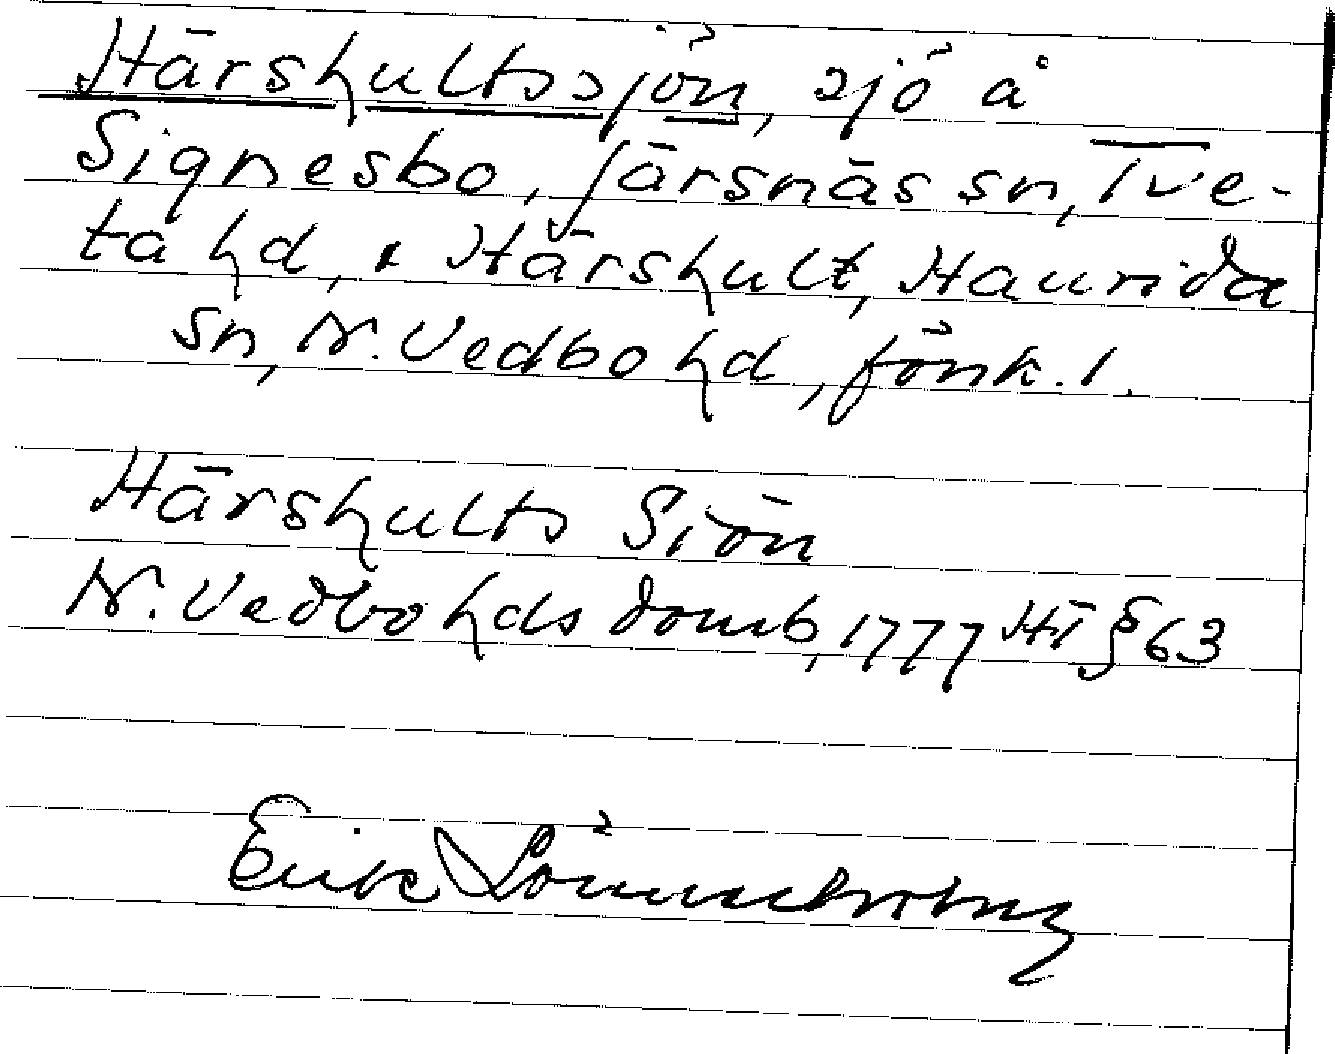 Härshultssjön, sjö å
Signesbo, Järsnäs sn, Tve-
ta hd, & Härshult, Haurida
sn, N. Vedbo hd, Jönk. l.
Härshults Siön
N. Vedbo hds domb, 1777 HT § 63
Erik